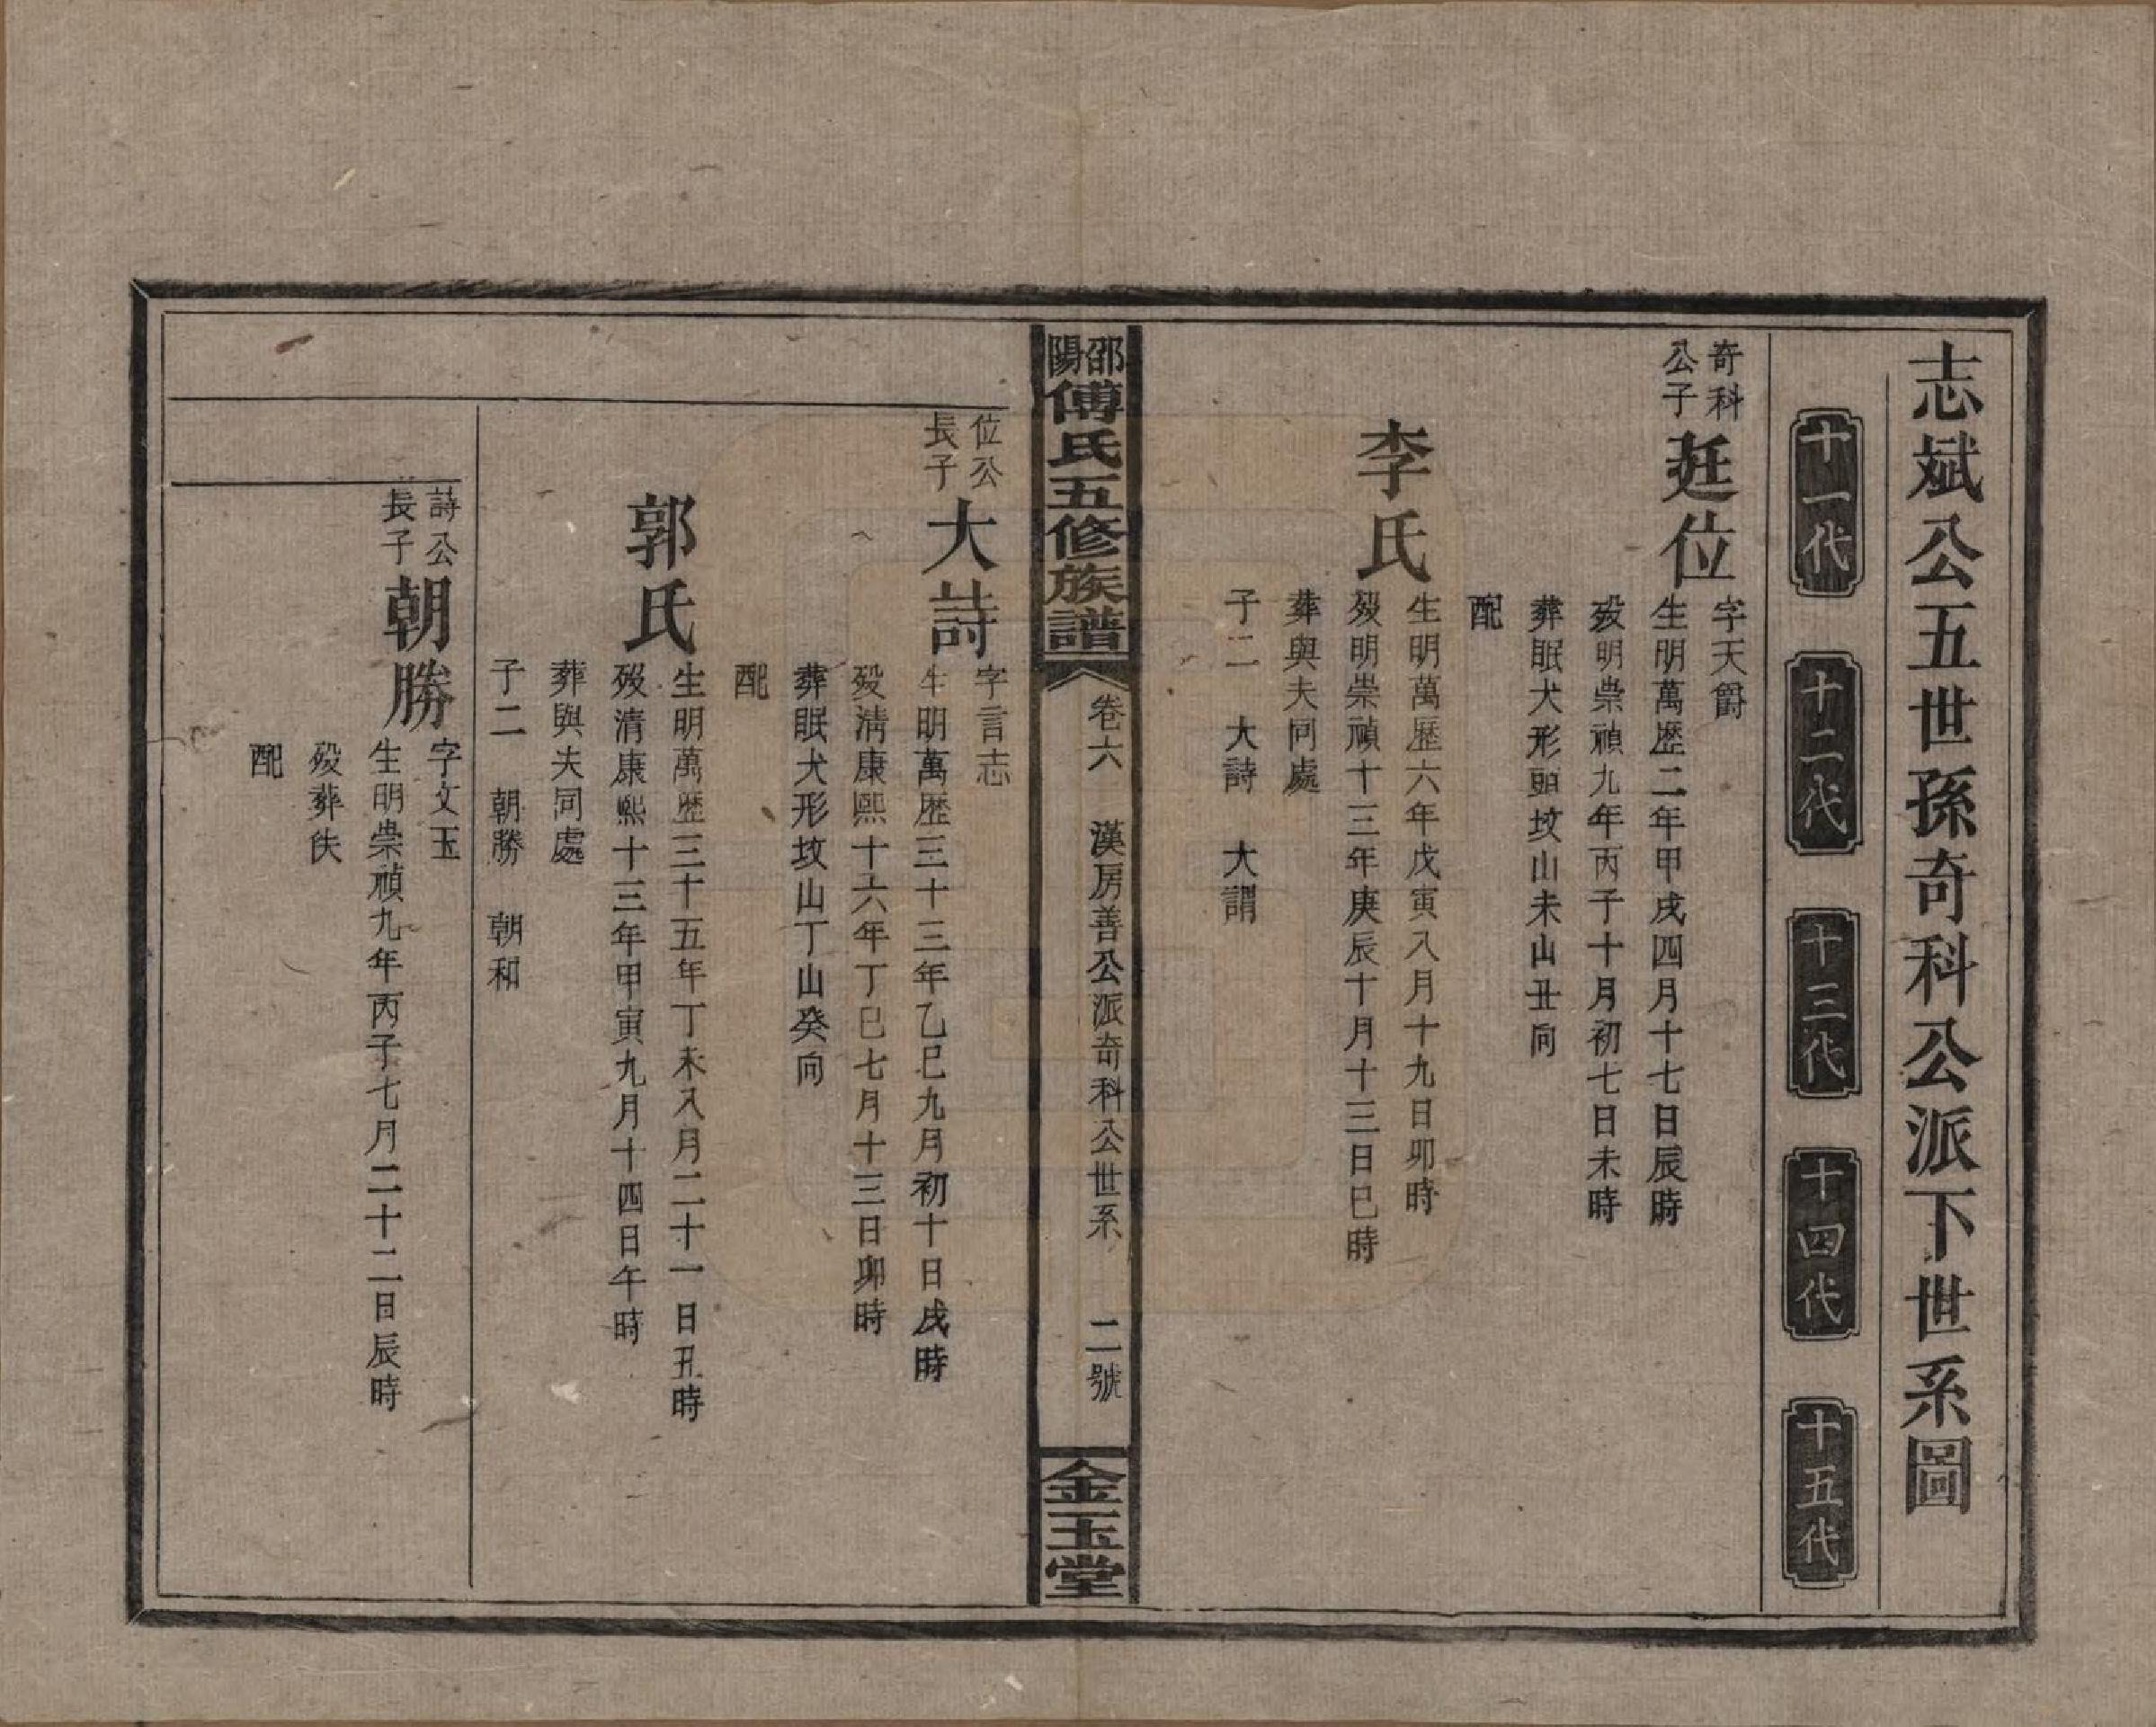 志斌公五世孫奇科公派下世系圖
十一代
十二代
十三代
十四代
十五代
奇科
公子
廷位
字天爵
生明萬歷二年甲戌四月十七日辰時
歿明崇禎九年丙子十月初七日未時
葬眠犬形頭坟山未山丑向
配
李氏
生明萬歷六年戊寅八月十九日卯時
歿明崇禎十三年庚辰十月十三日巳時
葬與夫同處
子二 大詩 大謂
邵陽
傅氏五修族譜
卷六 漢房善公派奇科公世系 二號
金玉堂
位公
長子
大詩
字言志
生明萬歷三十三年乙巳九月初十日戌時
歿清康熙十六年丁巳七月十三日卯時
葬眠犬形坟山丁山癸向
配
郭氏
生明萬歷三十五年丁未八月二十一日丑時
歿清康熙十三年甲寅九月十四日午時
葬與夫同處
子二 朝勝 朝和
詩公
長子
朝勝
字文玉
生明崇禎九年丙子七月二十二日辰時
歿葬佚
配